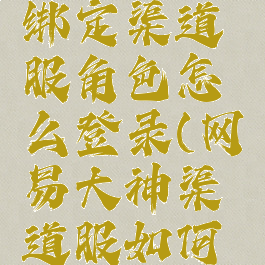 绑定渠道
服角色怎
么登录(网
易大神渠
道服如何